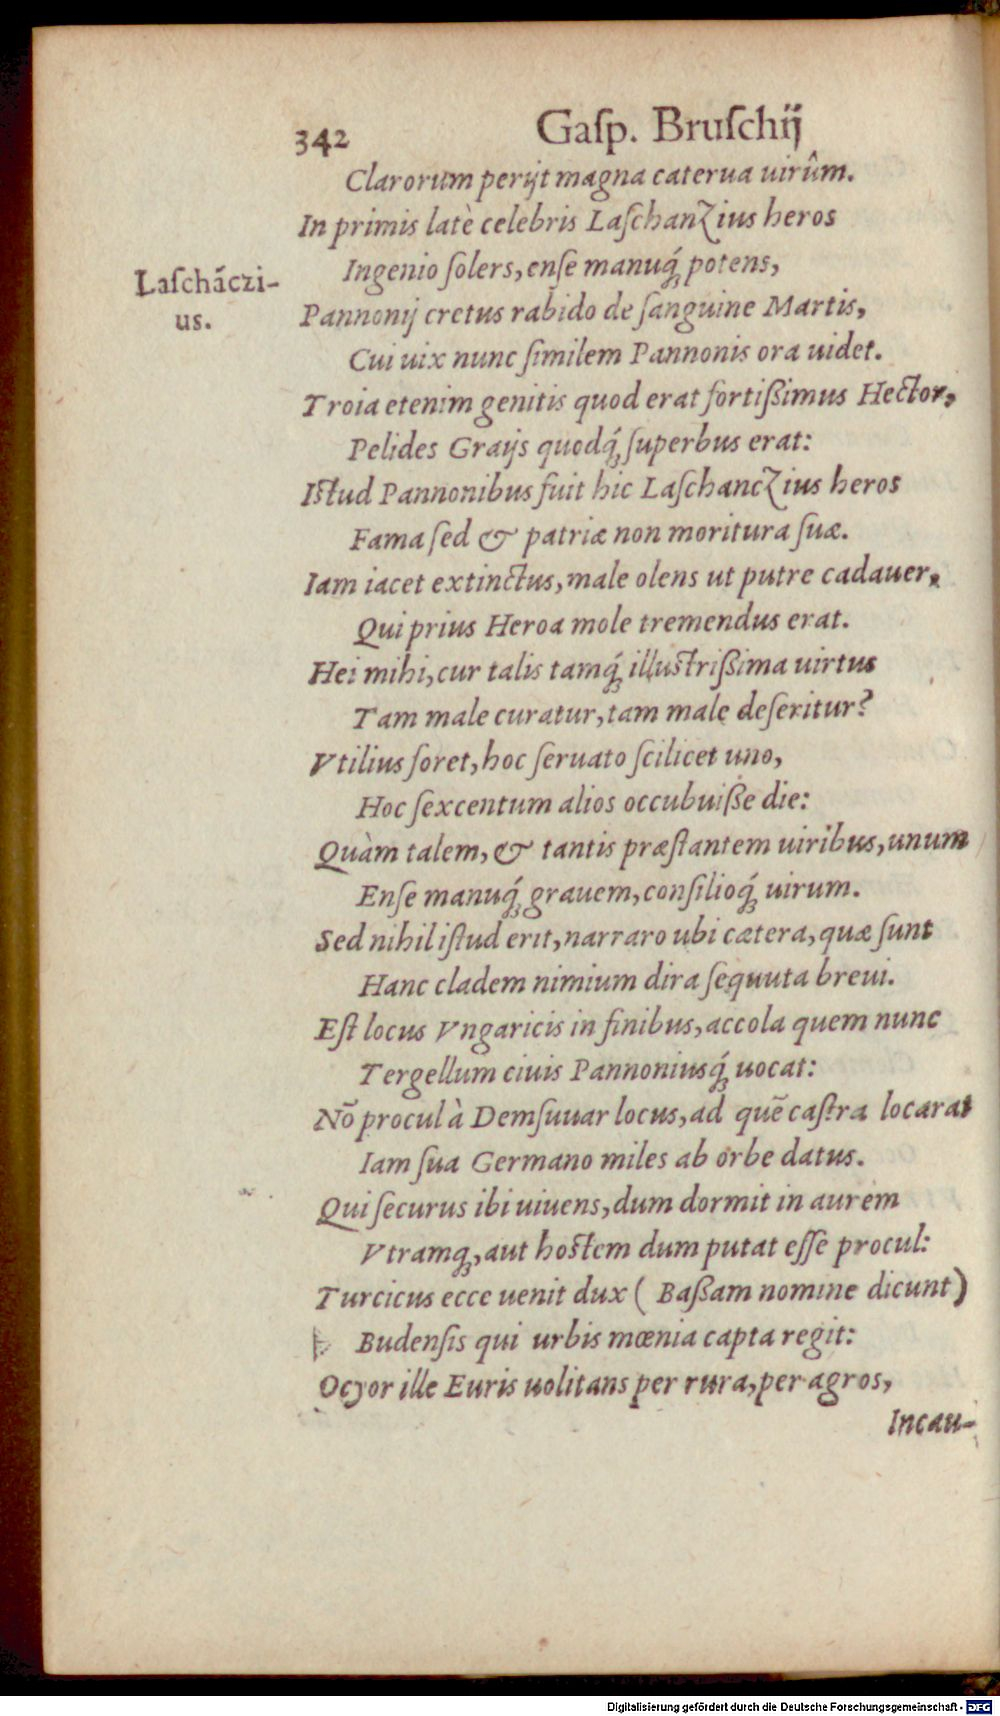 342 Gaſp. Bruſchij
Clarorum perijt magna caterua uirûm.
In primis latè celebris Laſchanzius heros
Ingenio ſolers, enſe manuq́; potens,
Laſchãczi-
us.
Pannonij cretus rabido de ſanguine Martis,
Cui uix nunc ſimilem Pannonis ora uidet.
Troia etenim genitis quod erat fortißimus Hector,
Pelides Graijs quodq́; ſuperbus erat:
Iſtud Pannonibus fuit hic Laſchanczius heros
Fama ſed & patriæ non moritura ſuæ.
Iam iacet extinctus, male olens ut putre cadauer,
Qui prius Heroa mole tremendus erat.
Hei mihi, cur talis tamq́; illuſtrißima uirtus
Tam male curatur, tam male deſeritur?
Vtilius foret, hoc ſeruato ſcilicet uno,
Hoc ſexcentum alios occubuiße die:
Quàm talem, & tantis præſtantem uiribus, unum
Enſe manuq́; grauem, conſilioq́; uirum.
Sed nihil iſtud erit, narraro ubi cætera, quæ ſunt
Hanc cladem nimium dira ſequuta breui.
Eſt locus Vngaricis in finibus, accola quem nunc
Tergellum ciuis Pannoniusq́; uocat:
Nõ procul à Demſuuar locus, ad quẽ caſtra locarat
Iam ſua Germano miles ab orbe datus.
Qui ſecurus ibi uiuens, dum dormit in aurem
Vtramq;, aut hoſtem dum putat eſſe procul:
Turcicus ecce uenit dux ( Baßam nomine dicunt)
Budenſis qui urbis mœnia capta regit:
Ocyor ille Euris uolitans per rura, per agros,
Incau-
Digitalisierung gefördert durch die Deutsche Forschungsgemeinschaft - DFG